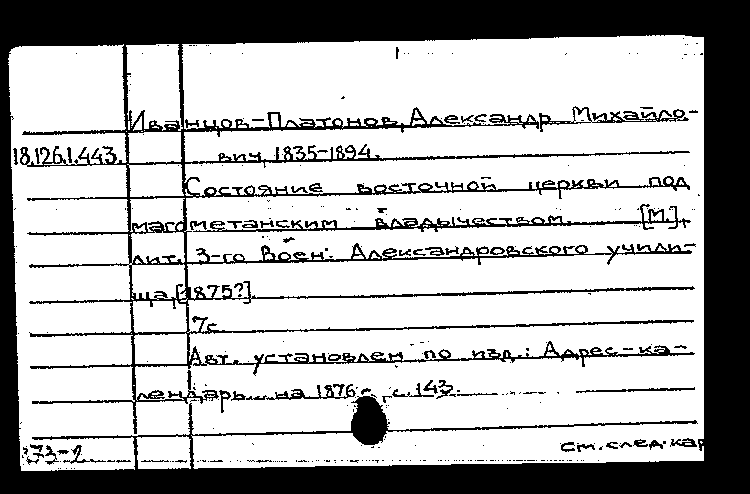 Иванцов-Платонов, Александр Михайло-
18.126.1.443. вич, 1835-1894.
Состояние восточной церкви под
магометанским владычеством. [М.],
лит. 3-го Воен. Александровского учили-
ща, [1875?].
7с.
Авт. установлен по изд.: Адрес-ка-
лендарь... на 1876 г., с. 143.
373-2. см. след. кар